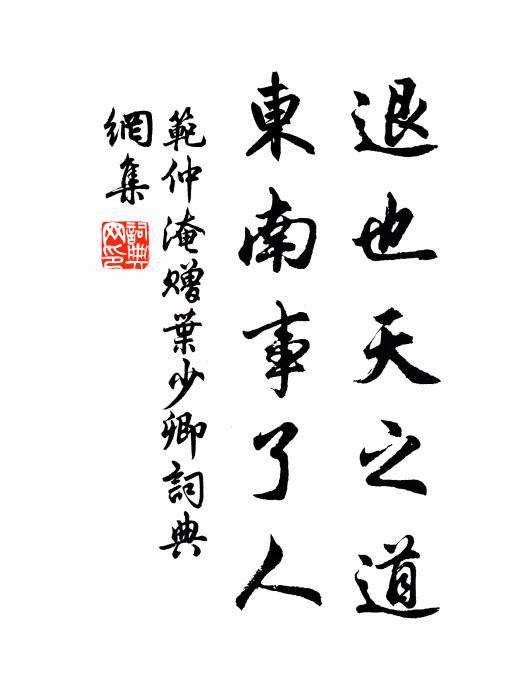 退也天之道
東南事了人
範仲淹贈葉少卿詞典
網集
詞典
网印